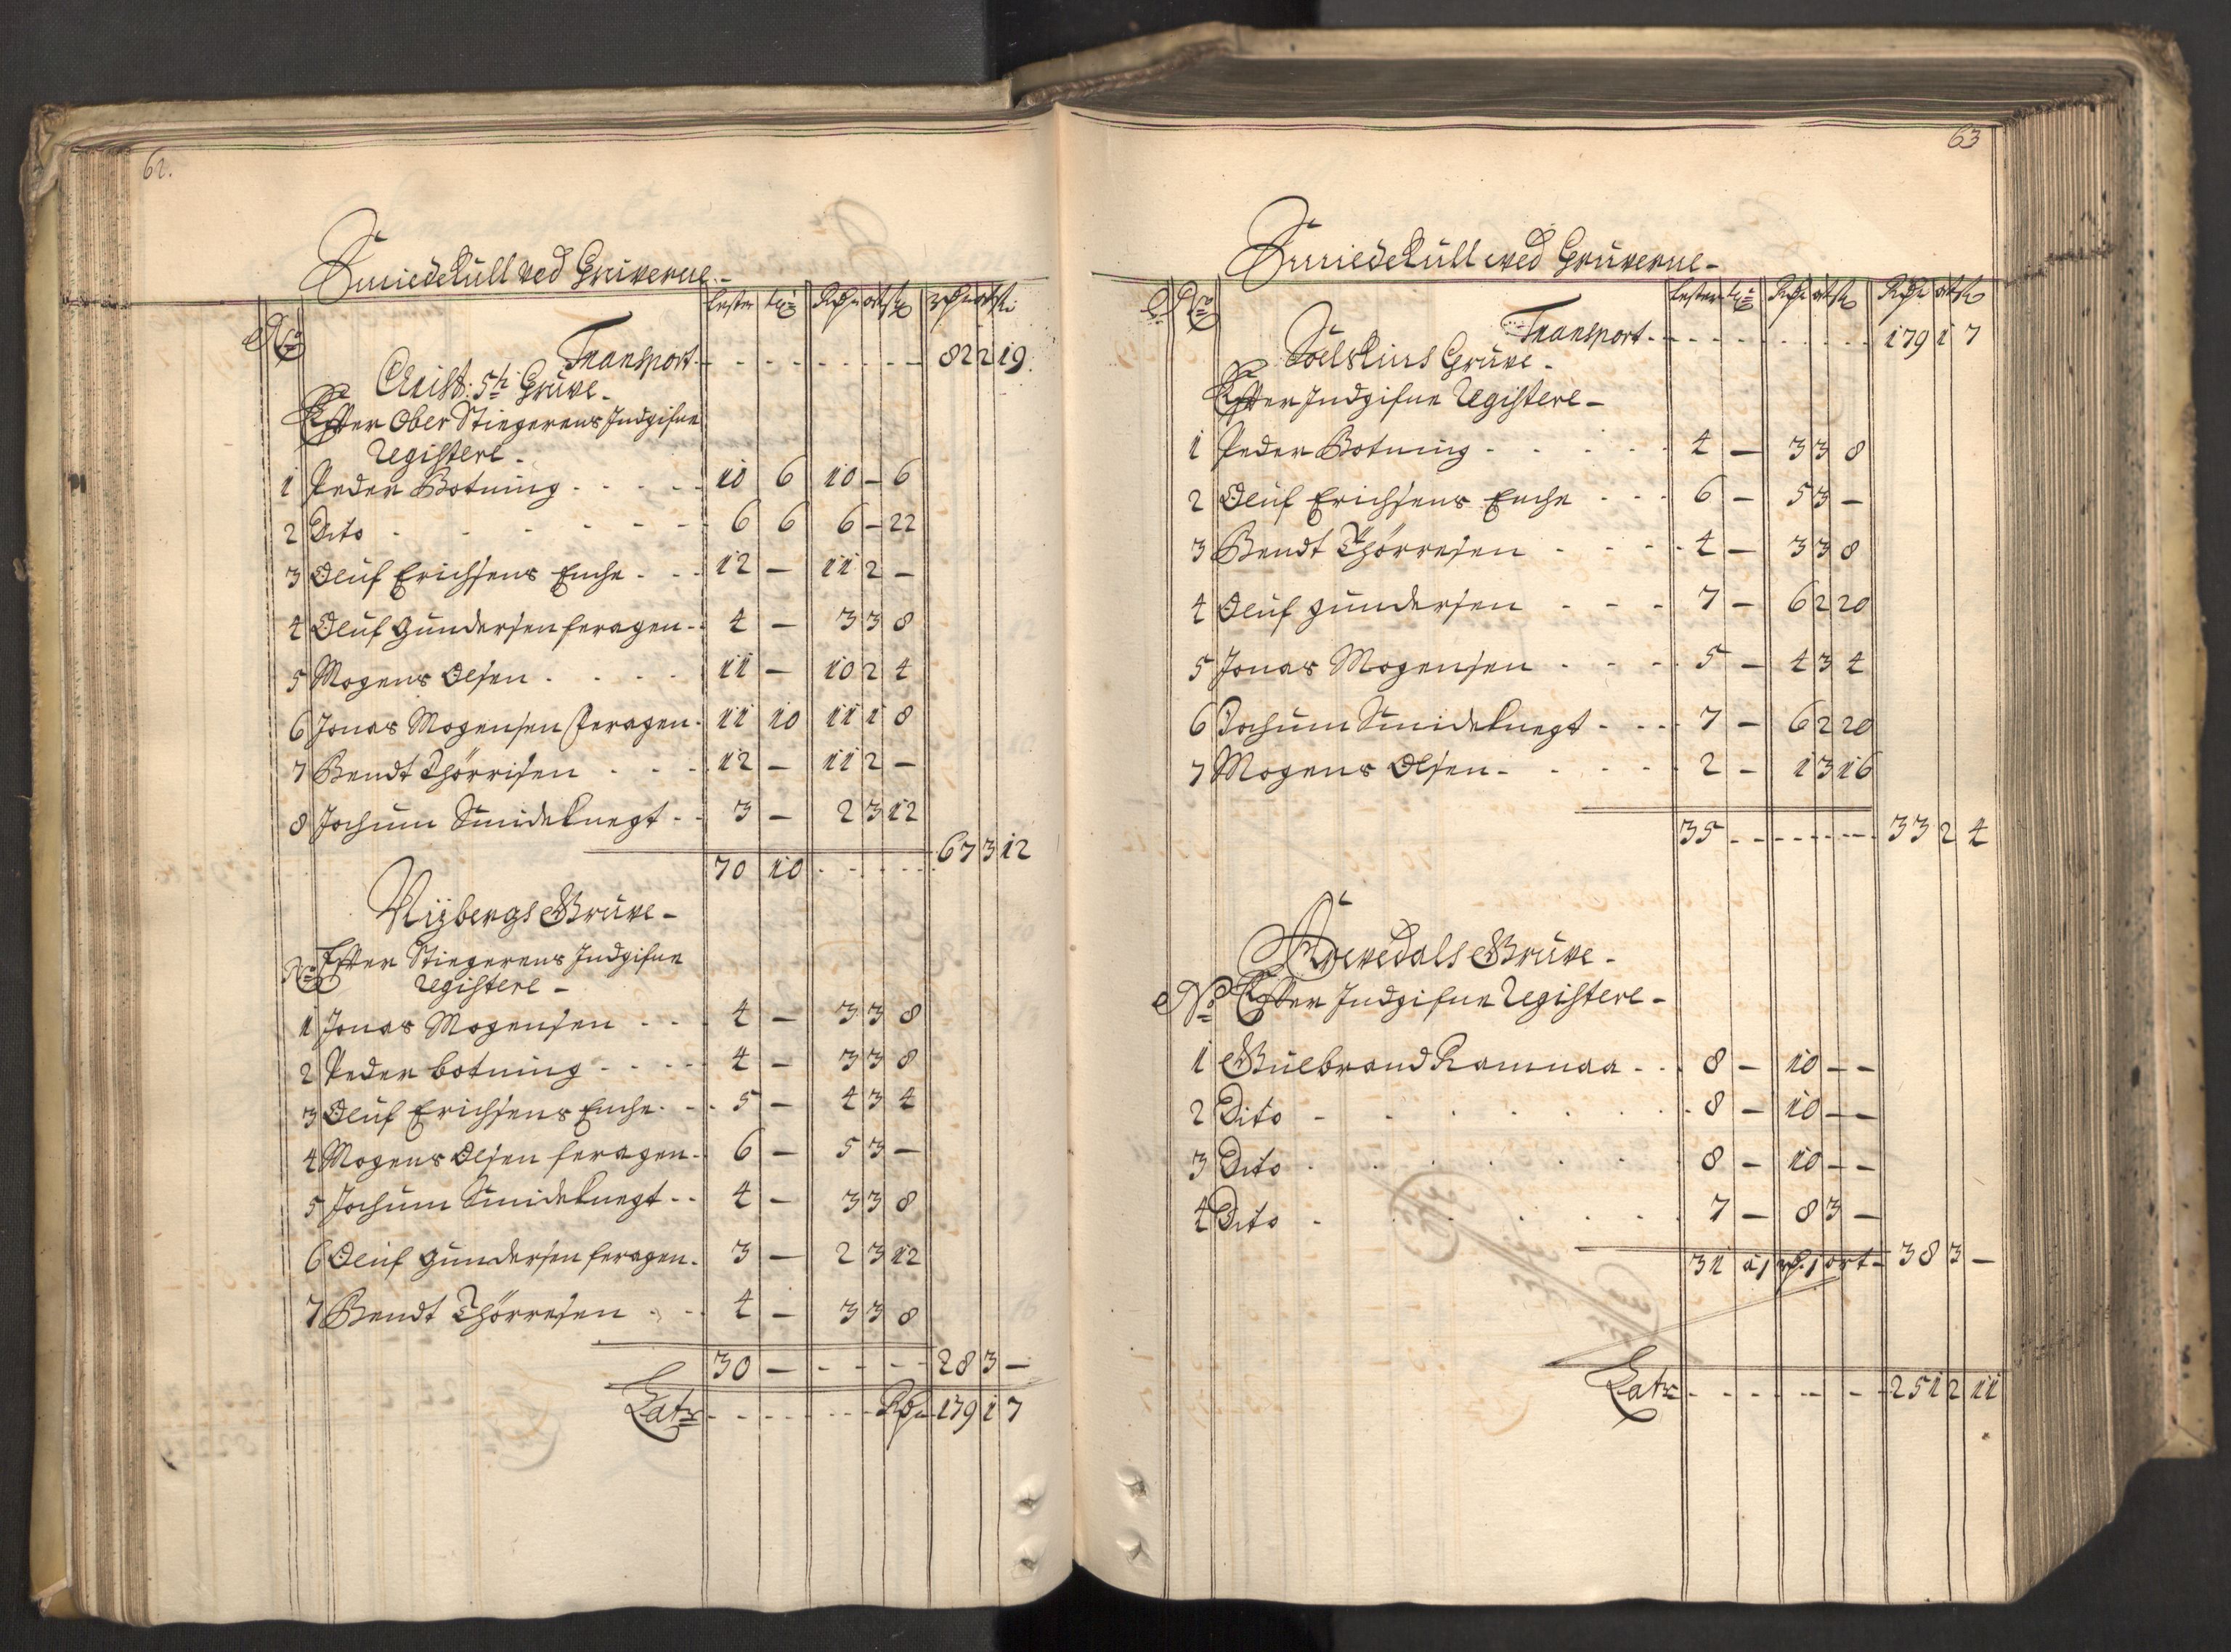 62.
Smiedekull ved Gruverne.-
No Lester tr: Rdr ort sk Rdr ort sk
Transport - - - - - - - 82 2 19.
Christ: 5ti Gruve.
Efter Ober Stiegerens Indgifne
Registere.
1 Peder Botning - - - - 10 6 10 - 6
2 Dito - - - - - - 6 6 6 - 22
3 Oluf Erichsens Enche - - - 12 - 11 2 -
4 Oluf Gundersen feragen - 4 - 3 3 8
5 Mogens Olsen - - - - 11 - 10 2 4
6 Jonas Mogensen feragen - 11 10 11 1 8
7 Bendt Thörrisen - - - 12 - 11 2 -
8 Jochum Smideknegt - - 3 - 2 3 12
70 10 - - - - 67 3 12
Nÿbergs Gruve -
No Efter Stiegerens Indgifne
Registere -
1 Jonas Mogensen - - - 4 - 3 3 8
2 Peder botning - - - - 4 - 3 3 8
3 Oluf Erichsens Enche - - 5 - 4 3 4
4 Mogens Olsen feragen - 6 - 5 3 -
5 Jochum Smideknegt - - 4 - 3 3 8
6 Oluf Gundersen feragen - 3 - 2 3 12
7 Bendt Thörresen - - 4 - 3 3 8
30 - - - - - 28 3 -
Lat: - - - - - - Rdr 179 1 7
63
Smiedekull ved Gruverne -
No Lester tr: Rdr ort sk Rdr ort sk
Transport - - - - - - - 179 1 7
Soelskins Gruve -
Efter Indgifne Registere -
1 Peder Botning - - - - 4 - 3 3 8
2 Oluf Erichsens Enche - - - 6 - 5 3 -
3 Bendt Thörresen - - - - 4 - 3 3 8
4 Oluf Gundersen - - - 7 - 6 2 20
5 Jonas Mogensen - - - - 5 - 4 3 4
6 Jochum Smideknegt - - - 7 - 6 2 20
7 Mogens Olsen - - - - - 2 - 1 3 16
35 - - - - - - 33 2 4
Arvedals Gruve -
No Efter Indgifne Registere -
1 Gulbrand Ramnaa - - 8 - 10 - -
2 Dito - - - - - - - 8 - 10 - -
3 Dito - - - - - - 8 - 10 - -
4 Dito - - - - - - 7 - 8 3 -
31 a 1 rdr. 1 ort - 38 3 -
Lat: - - - - - - 251 2 11